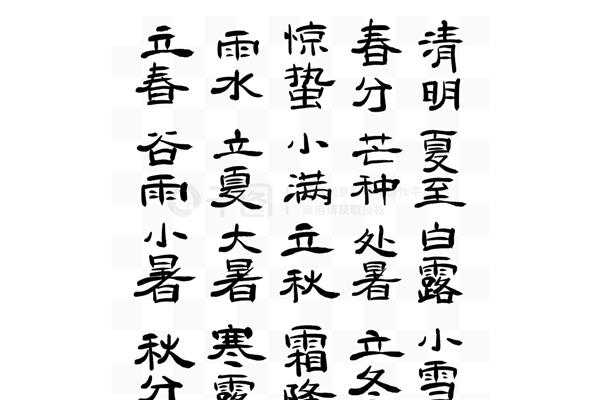 立春 雨水 惊蛰 春分 清明
谷雨 立夏 小满 芒种 夏至
小暑 大暑 立秋 处暑 白露
秋分 寒露 霜降 立冬 小雪
千图
商用请获取授权